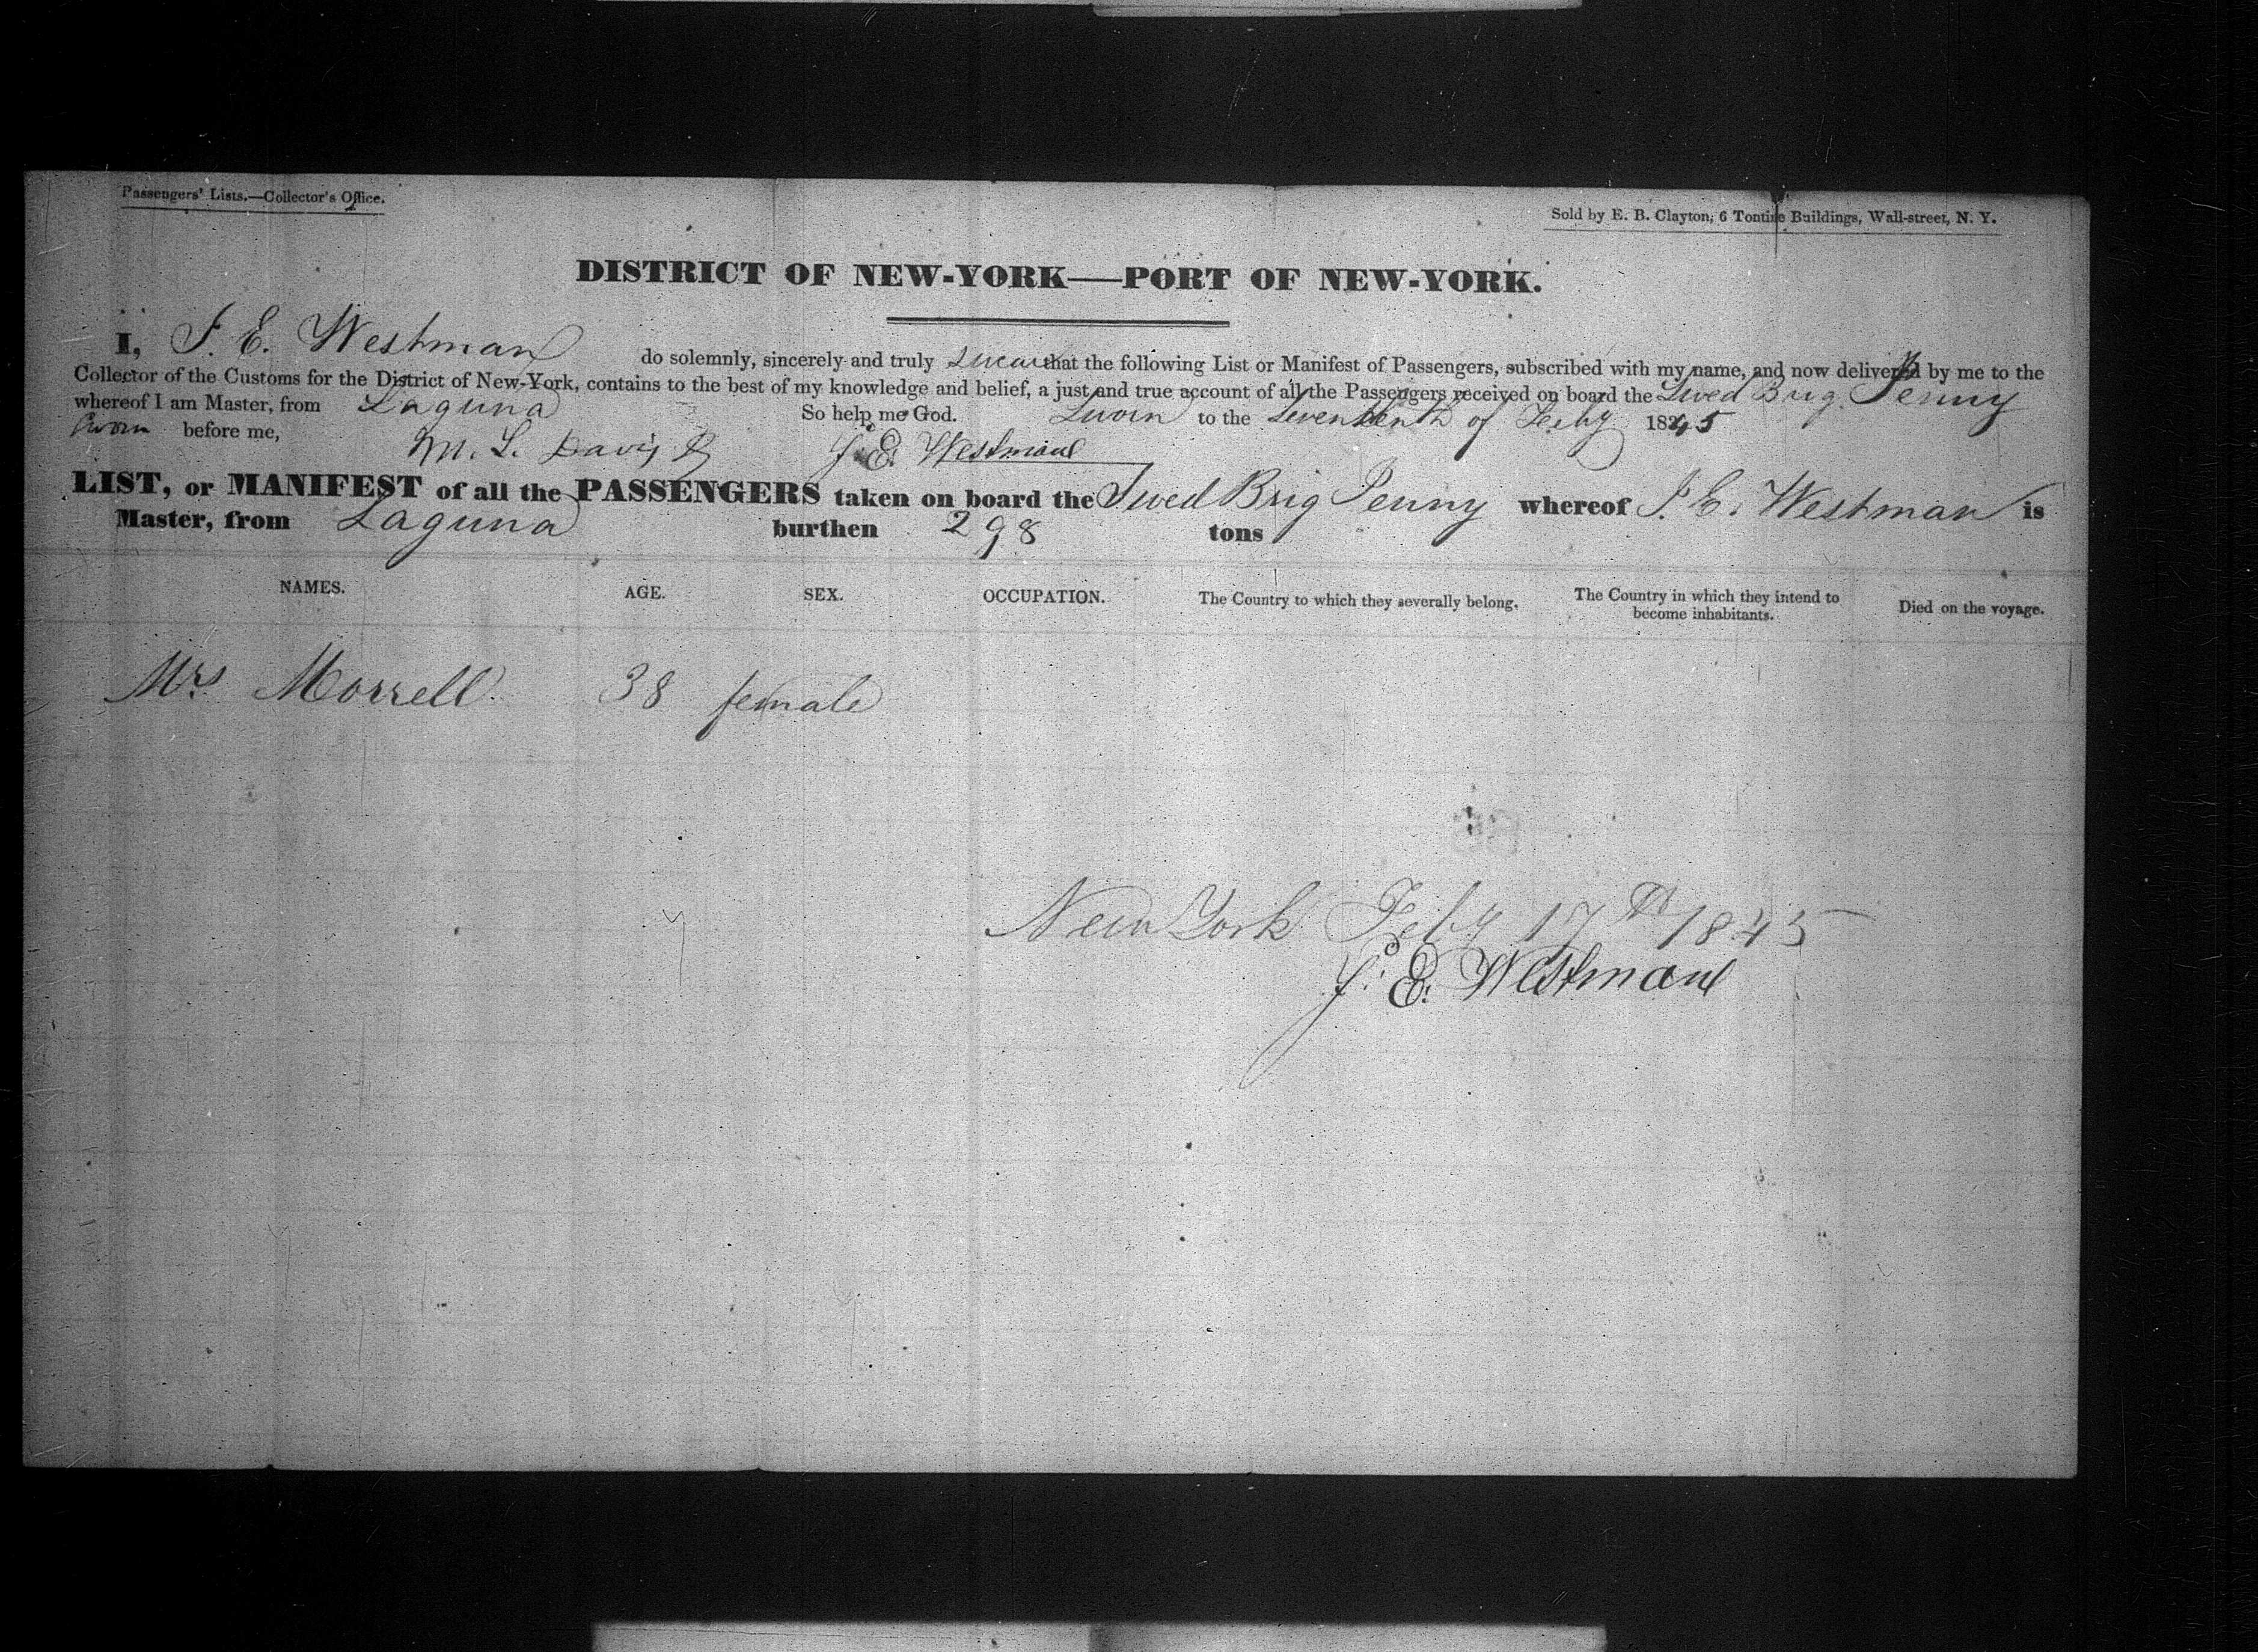 Passengers' Lists.—Collector's Office.
Sold by E. B. Clayton, 6 Tontine Buildings, Wall-street, N. Y.
DISTRICT OF NEW-YORK—PORT OF NEW-YORK.
I, J. E. Westman do solemnly, sincerely and truly swear that the following List or Manifest of Passengers, subscribed with my name, and now delivered by me to the
Collector of the Customs for the District of New-York, contains to the best of my knowledge and belief, a just and true account of all the Passengers received on board the Swed Brig Jenny
whereof I am Master, from Laguna So help me God. Sworn to the Seventeenth of Feby 1845
Sworn before me, M. L. Davis J. E. Westman
LIST, or MANIFEST of all the PASSENGERS taken on board the Swed Brig Jenny whereof J. E. Westman is
Master, from Laguna burthen 298 tons
NAMES. AGE. SEX. OCCUPATION. The Country to which they severally belong. The Country in which they intend to become inhabitants. Died on the voyage.
Mrs Morrell 38 female
New York Feby 17th 1845
J. E. Westman